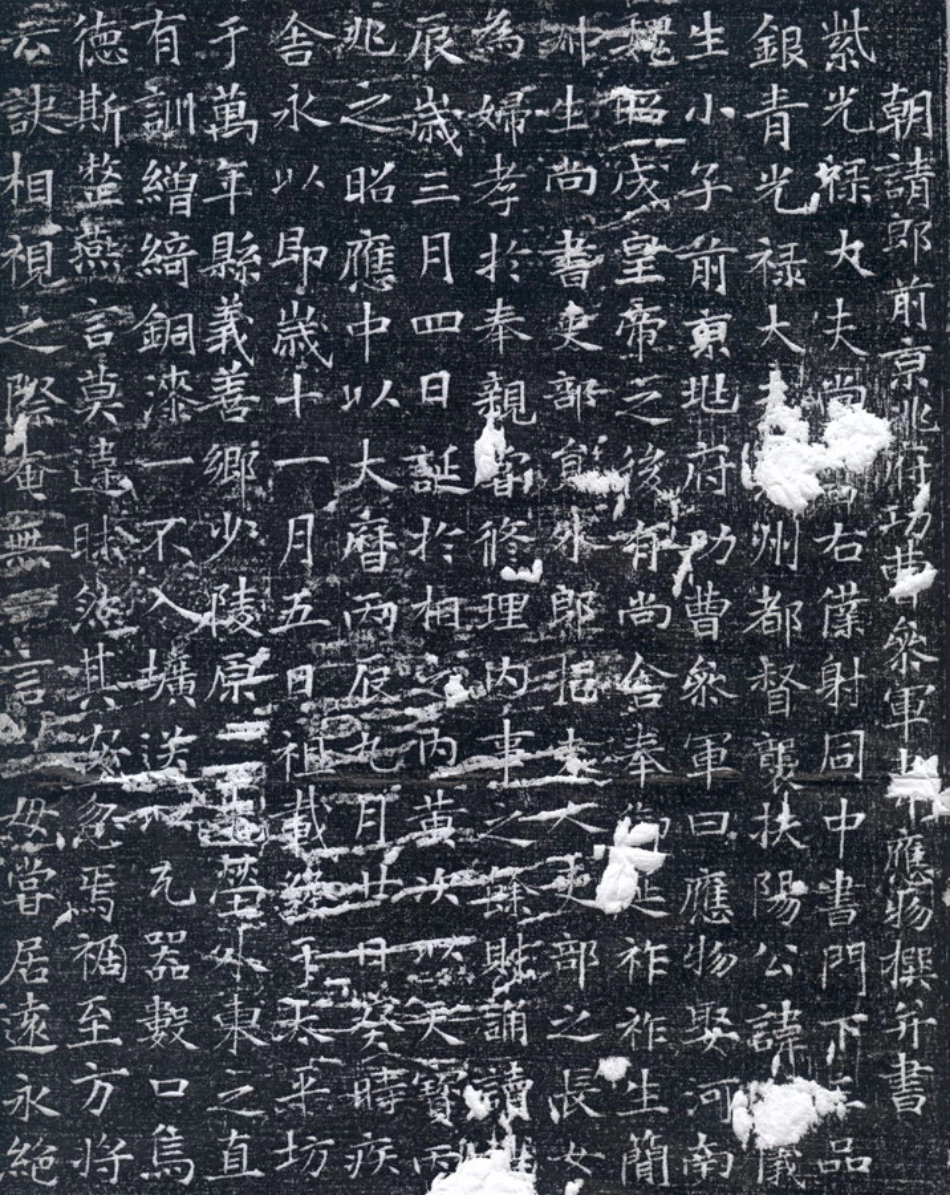 朝請郎前京兆府功曹參軍韋應物撰并書
紫光祿大夫尚書右僕射同中書門下三品
銀青光祿大夫州都督襲扶陽公諱儀
生小子前京兆府功曹參軍曰應物娶河南
魏昭成皇帝之後有尚舍奉御延祚祚生簡
州生尚書吏部員外郎挹夫人吏部之長女
為婦孝於奉親當修理內事之餘則誦讀
辰歲三月四日誕於相之內黃次以天寶丙
兆之昭應中以大曆丙辰九月廿日癸時疾
舍永以即歲十一月五日祖載終于太平坊
于萬年縣義善鄉少陵原塋外東之直
有訓繒綺銅漆一不入壙送以瓦器數口焉
德斯整燕言莫違昧然其安忽焉禍至方將
云訣相視之際奄無一言母嘗居遠永絕